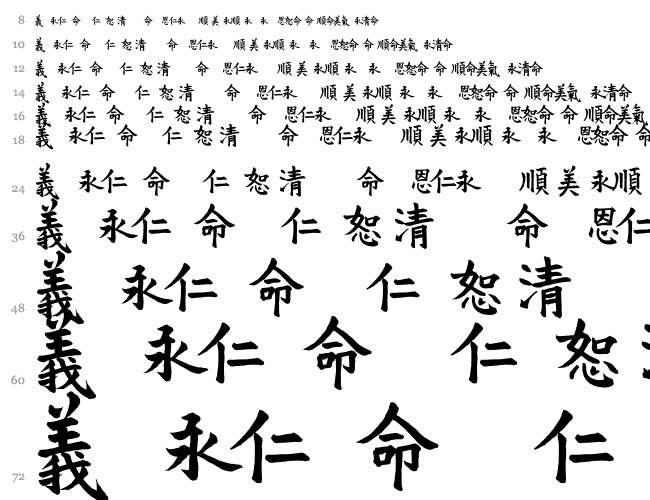 8 義 永仁 命 仁 恕 清 命 恩仁永 順 美 永順 永 永 恩恕命 命 順命美氣 永清命
10 義 永仁 命 仁 恕 清 命 恩仁永 順 美 永順 永 永 恩恕命 命 順命美氣 永清命
12 義 永仁 命 仁 恕 清 命 恩仁永 順 美 永順 永 永 恩恕命 命 順命美氣 永清命
14 義 永仁 命 仁 恕 清 命 恩仁永 順 美 永順 永 永 恩恕命 命 順命美氣 永清命
16 義 永仁 命 仁 恕 清 命 恩仁永 順 美 永順 永 永 恩恕命 命 順命美氣
18 義 永仁 命 仁 恕 清 命 恩仁永 順 美 永順 永 永 恩恕命 命
24 義 永仁 命 仁 恕 清 命 恩仁永 順 美 永順
36 義 永仁 命 仁 恕 清 命 恩仁
48 義 永仁 命 仁 恕 清
60 義 永仁 命 仁 恕
72 義 永仁 命 仁